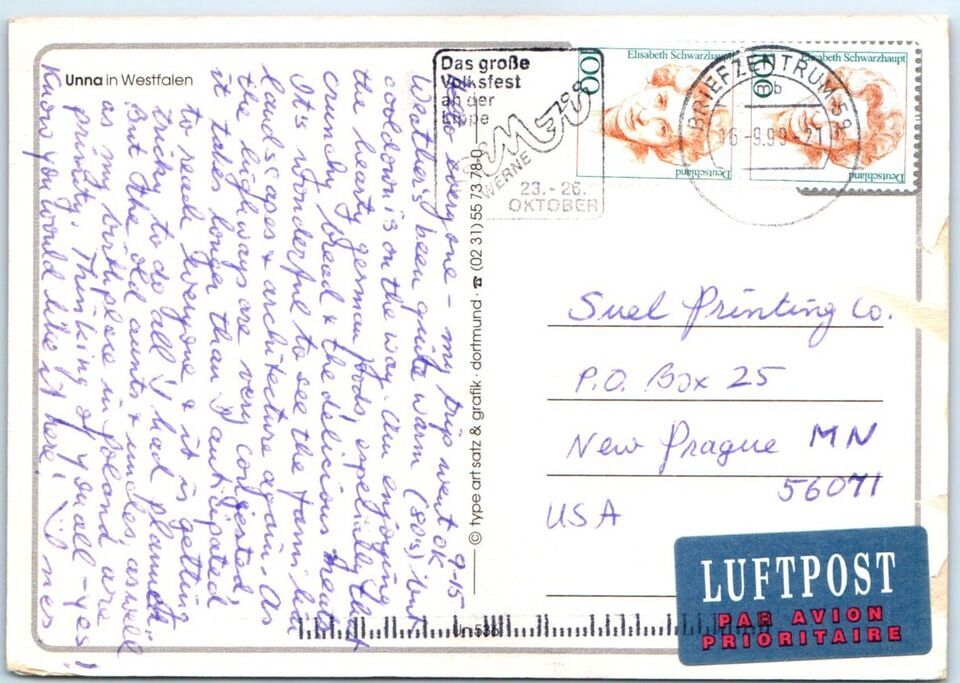 Unna in Westfalen
9-15
Dear everyone - my trip went ok.
Weather's been quite warm (80's) but
cooldown is on the way. Am enjoying
the hearty german foods, especially the
crunchy bread & the delicious meat
It's wonderful to see the farm
lands apes & architecture again. As
the highways are very congested,
it takes longer than I anticipated,
to reach everyone & it is getting
tricky to do all I had planned.
But the old aunts & uncles, as well
as my birthplace in Poland are
priority. Thinking of you all - yes!
Know you would like it here!
© typeart satz & grafik · dortmund · ☎ (02 31) 55 73 78-0
Un 536
Das große
Volksfest
an der
Lippe
WERNE
23.-26.
OKTOBER
100
Elisabeth Schwarzhaupt
Deutschland
100
Elisabeth Schwarzhaupt
Deutschland
BRIEFZENTRUM 59
mb
16.-9.99-21
Suel Printing Co.
P.O. Box 25
New Prague MN
56071
USA
LUFTPOST
PAR AVION
PRIORITAIRE